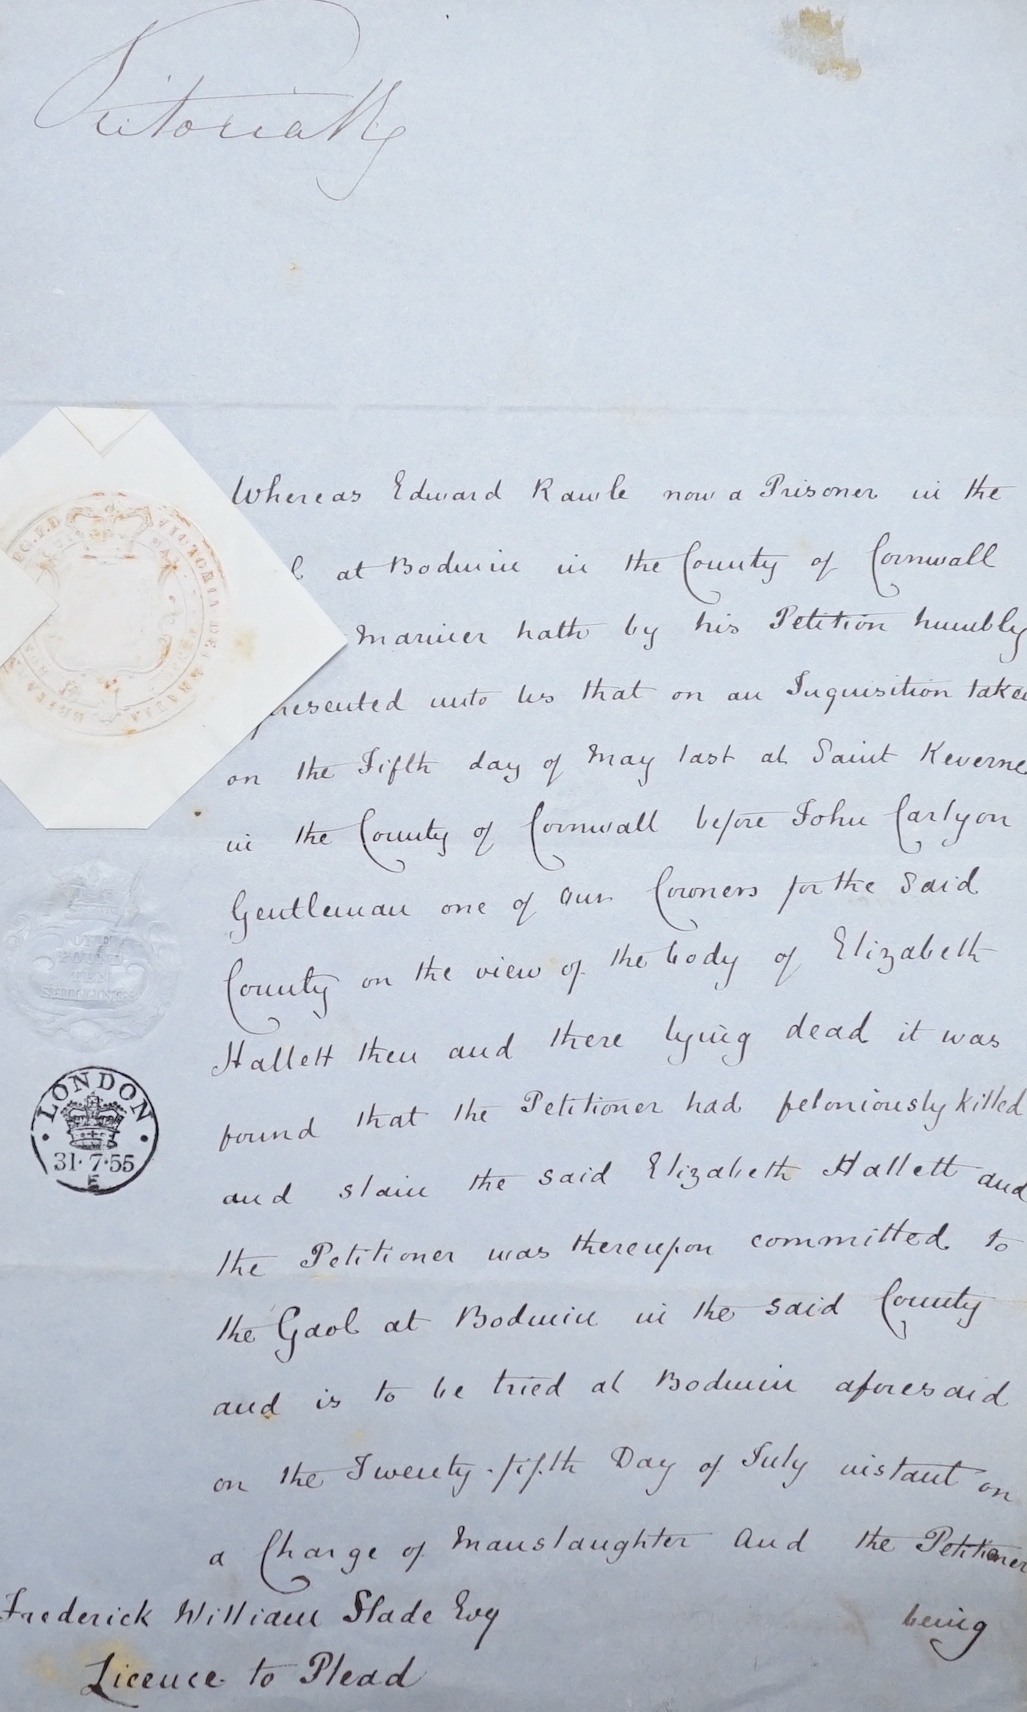 Victoria R
Whereas Edward Rawle now a Prisoner in the
at Bodmin in the County of Cornwall
Mariner hath by his Petition humbly
presented unto Us that on an Inquisition taken
on the Fifth day of May last at Saint Keverne
in the County of Cornwall before John Carlyon
Gentleman one of Our Coroners for the Said
County on the view of the body of Elizabeth
Hallett then and there lying dead it was
found that the Petitioner had feloniously killed
and slain the said Elizabeth Hallett and
the Petitioner was thereupon committed to
the Gaol at Bodmin in the said County
and is to be tried at Bodmin aforesaid
on the Twenty-fifth Day of July instant on
a Charge of Manslaughter And the Petitioner
being
Frederick William Slade Esq
Licence to Plead
LONDON
31·7·55